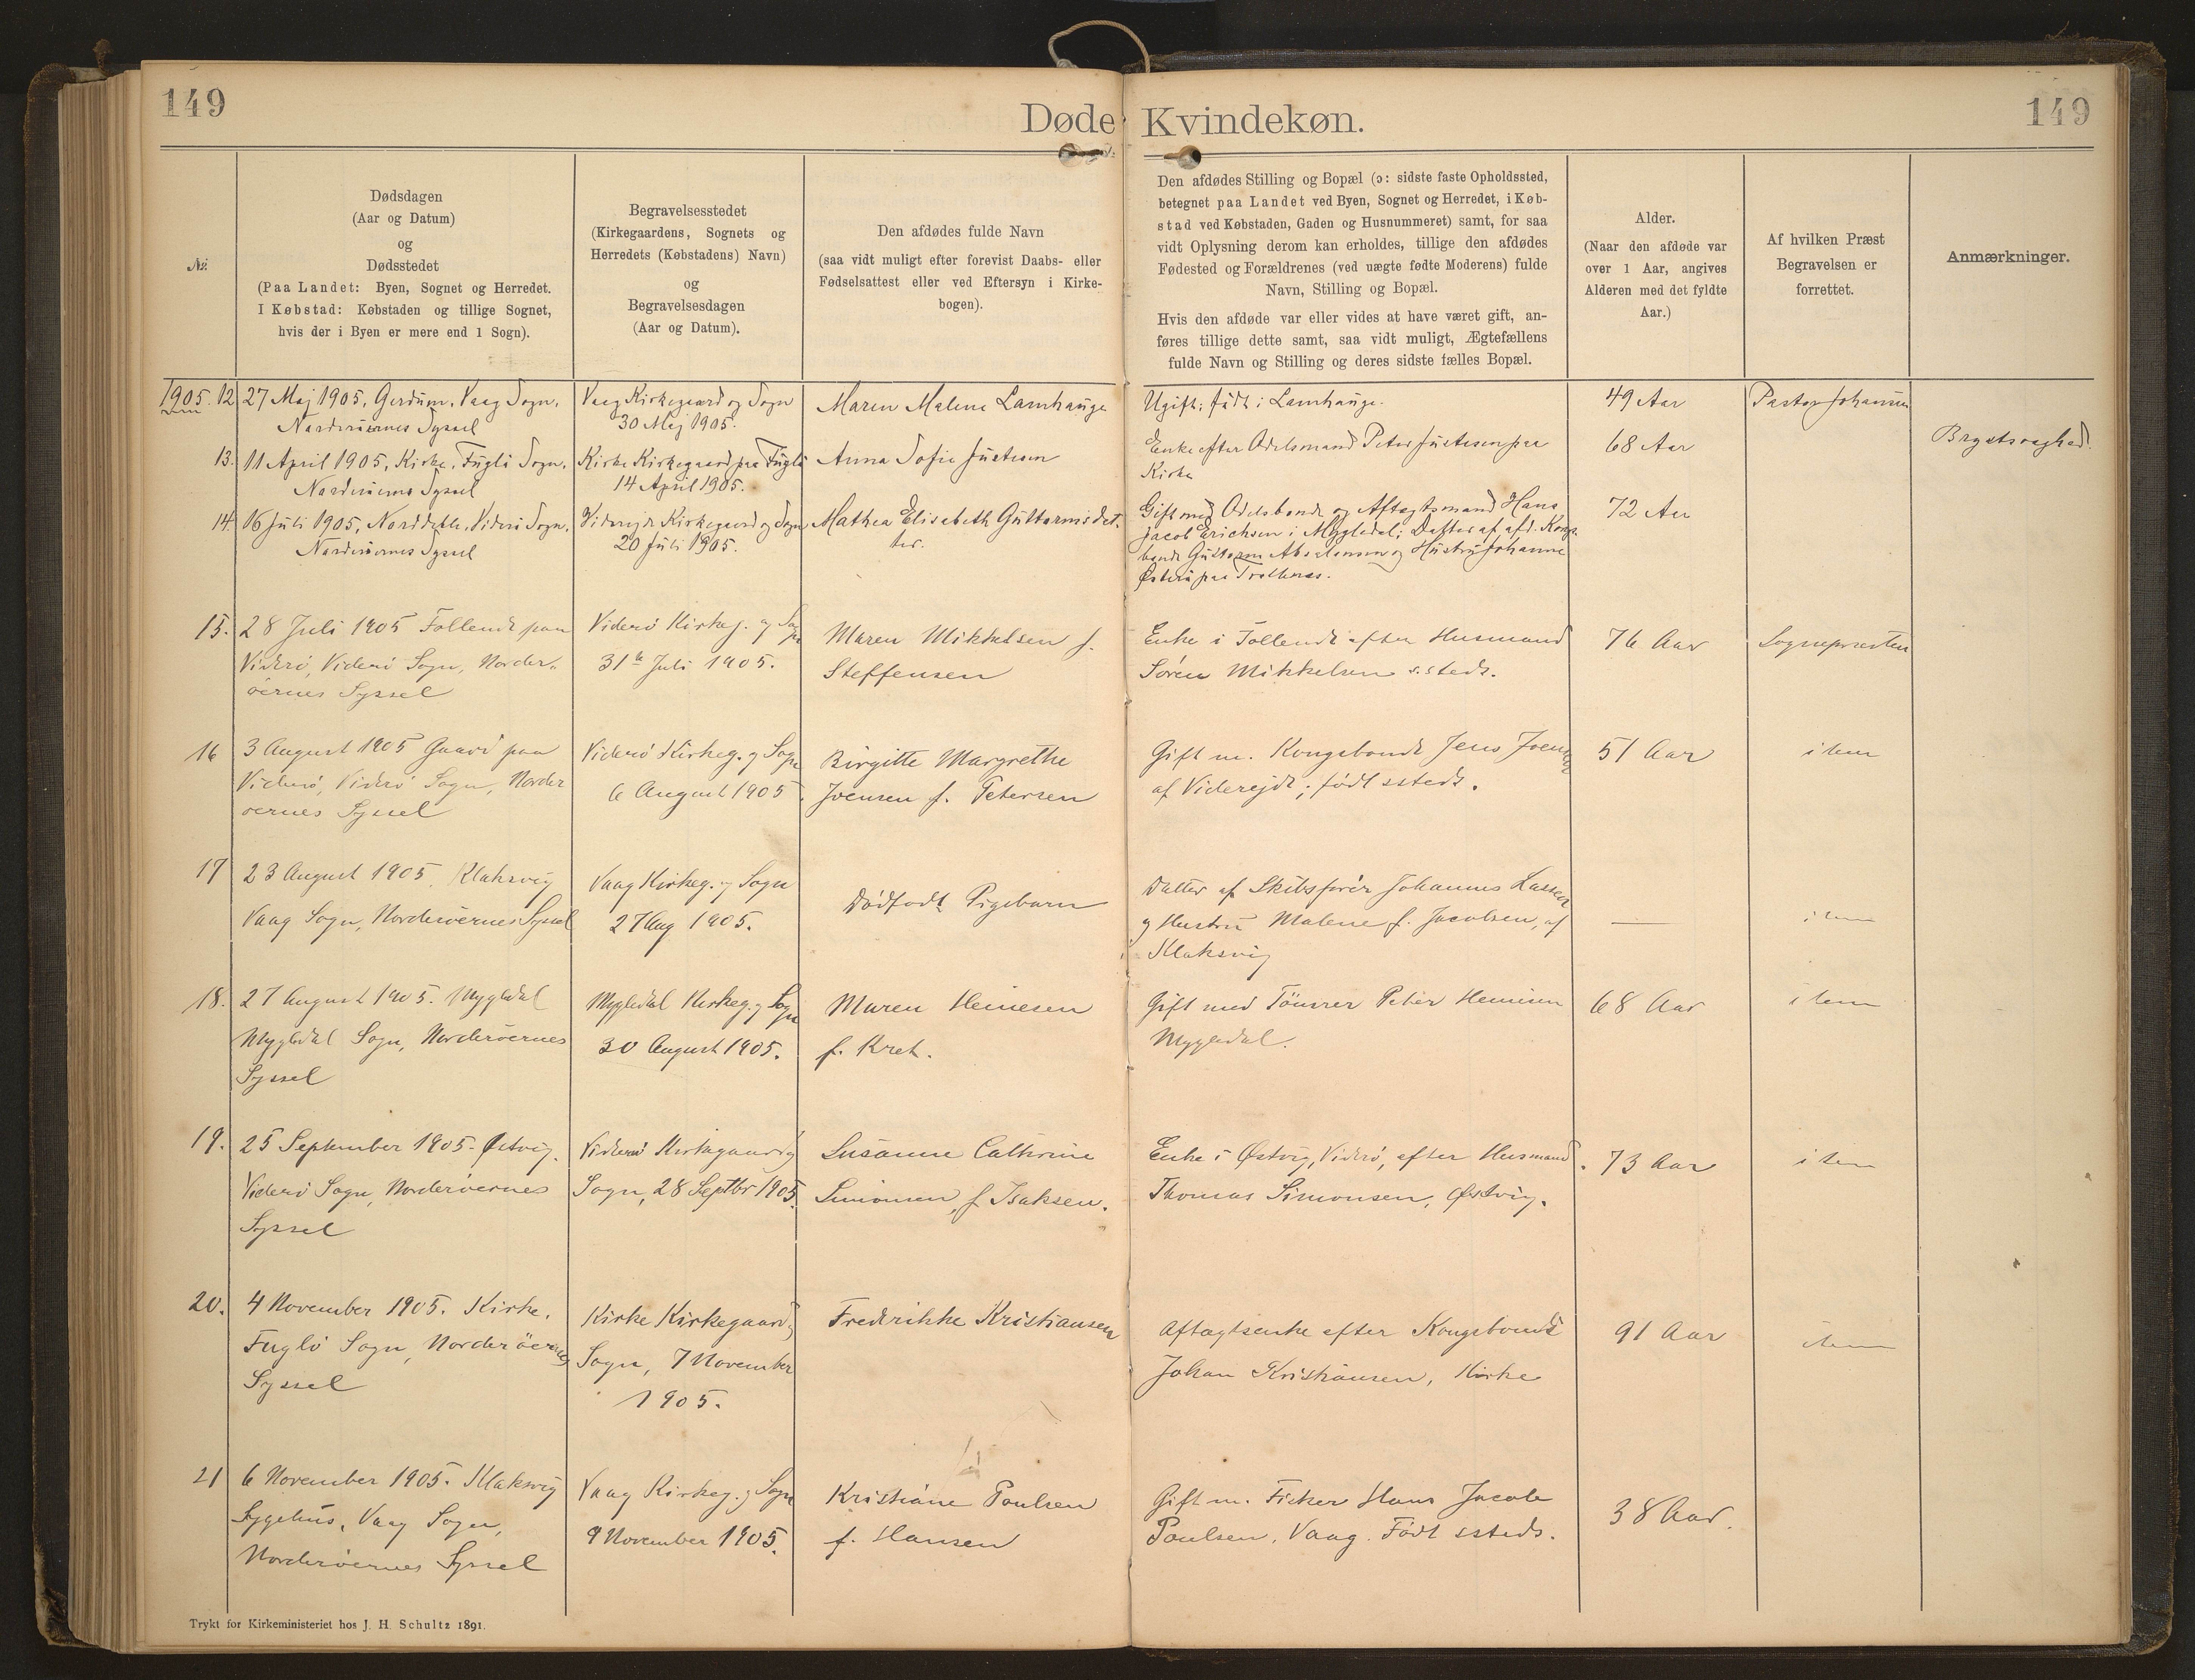 149
Døde Kvindekøn.
149
No.
Dødsdagen
(Aar og Datum)
og
Dødsstedet
(Paa Landet: Byen, Sognet og Herredet.
I Købstad: Købstaden og tillige Sognet,
hvis der i Byen er mere end 1 Sogn).
Begravelsesstedet
(Kirkegaardens, Sognets og
Herredets (Købstadens) Navn)
og
Begravelsesdagen
(Aar og Datum).
Den afdødes fulde Navn
(saa vidt muligt efter forevist Daabs- eller
Fødselsattest eller ved Eftersyn i Kirke-
bogen).
Den afdødes Stilling og Bopæl (ɔ: sidste faste Opholdssted,
betegnet paa Landet ved Byen, Sognet og Herredet, i Køb-
stad ved Købstaden, Gaden og Husnummeret) samt, for saa
vidt Oplysning derom kan erholdes, tillige den afdødes
Fødested og Forældrenes (ved uægte fødte Moderens) fulde
Navn, Stilling og Bopæl.
Hvis den afdøde var eller vides at have været gift, an-
føres tillige dette samt, saa vidt muligt, Ægtefællens
fulde Navn og Stilling og deres sidste fælles Bopæl.
Alder.
(Naar den afdøde var
over 1 Aar, angives
Alderen med det fyldte
Aar.)
Af hvilken Præst
Begravelsen er
forrettet.
Anmærkninger.
1905. 12
27 Maj 1905, Gerdum, Vaag Sogn,
Norderöernes Syssel
Vaag Kirkegaard og Sogn
30 Maj 1905.
Maren Malene Lamhauge
Ugift; født i Lamhauge.
49 Aar
Pastor Johansen
13.
11 April 1905, Kirke, Fuglö Sogn,
Norderöernes Syssel
Kirke Kirkegaard paa Fuglö
14 April 1905.
Anna Sofie Justesen
Enke efter Odelsmand Peter Justesen paa
Kirke
68 Aar
Brystsvaghed.
14.
16 Juli 1905, Norddeble, Viderö Sogn,
Norderöernes Syssel
Viderejde Kirkegaard og Sogn
20 Juli 1905.
Mathea Elisabeth Guttormsdat-
ter.
Gift med Odelsbonde og Aftægtsmand Hans
Jacob Erichsen i Mygledal; Datter af afd. Kongs-
bonde Guttorm Absalonsen og Hustru Johanne
Østerö paa Trøllenes.
72 Aar
15.
28 Juli 1905 Follende paa
Viderö, Viderö Sogn, Norder-
öernes Syssel
Viderö Kirkeg. og Sogn
31te Juli 1905.
Maren Mikkelsen f.
Steffensen
Enke i Tollende efter Husmand
Sören Mikkelsen s.steds.
76 Aar
Sognepræsten
16
3 August 1905 Gaard paa
Viderö, Viderö Sogn, Norder
öernes Syssel
Viderö Kirkeg. og Sogn
6 August 1905.
Birgitte Margrethe
Joensen f. Petersen
Gift m. Kongsbonde Jens Joensen
af Viderejde; født ssteds.
51 Aar
item
17
23 August 1905. Klaksvig
Vaag Sogn, Norderöernes Syssel
Vaag Kirkeg. og Sogn
27 Aug 1905.
Dödfödt Pigebarn
Datter af Skibsförer Johannes Lassen
og Hustru Malene f. Jacobsen, af
Klaksvig
—
item
18.
27 August 1905. Mygledal
Mygledal Sogn, Norderöernes
Syssel
Mygledal Kirkeg. og Sogn
30 August 1905.
Maren Heinesen
f. Kret.
Gift med Tömrer Peter Heinesen
Mygledal.
68 Aar
item
19.
25 September 1905. Østvig.
Viderö Sogn, Norderöernes
Syssel
Viderö Kirkegaard og
Sogn, 28 Septbr 1905.
Susanne Cathrine
Simonsen, f. Isaksen.
Enke i Østvig, Viderö, efter Husmand
Thomas Simonsen, Østvig.
73 Aar
item
20.
4 November 1905. Kirke.
Fuglö Sogn, Norderöernes
Syssel
Kirke Kirkegaard og
Sogn, 7 November
1905.
Frederikke Kristiansen
Aftægtsenke efter Kongsbonde
Johan Kristiansen, Kirke
91 Aar
item
21
6 November 1905. Klaksvig
Sygehus, Vaag Sogn,
Norderöernes Syssel
Vaag Kirkeg. og Sogn
9 November 1905.
Kristiane Poulsen
f. Hansen
Gift m. Fisker Hans Jacob
Poulsen, Vaag. Födt ssteds.
38 Aar.
Trykt for Kirkeministeriet hos J. H. Schultz 1891.